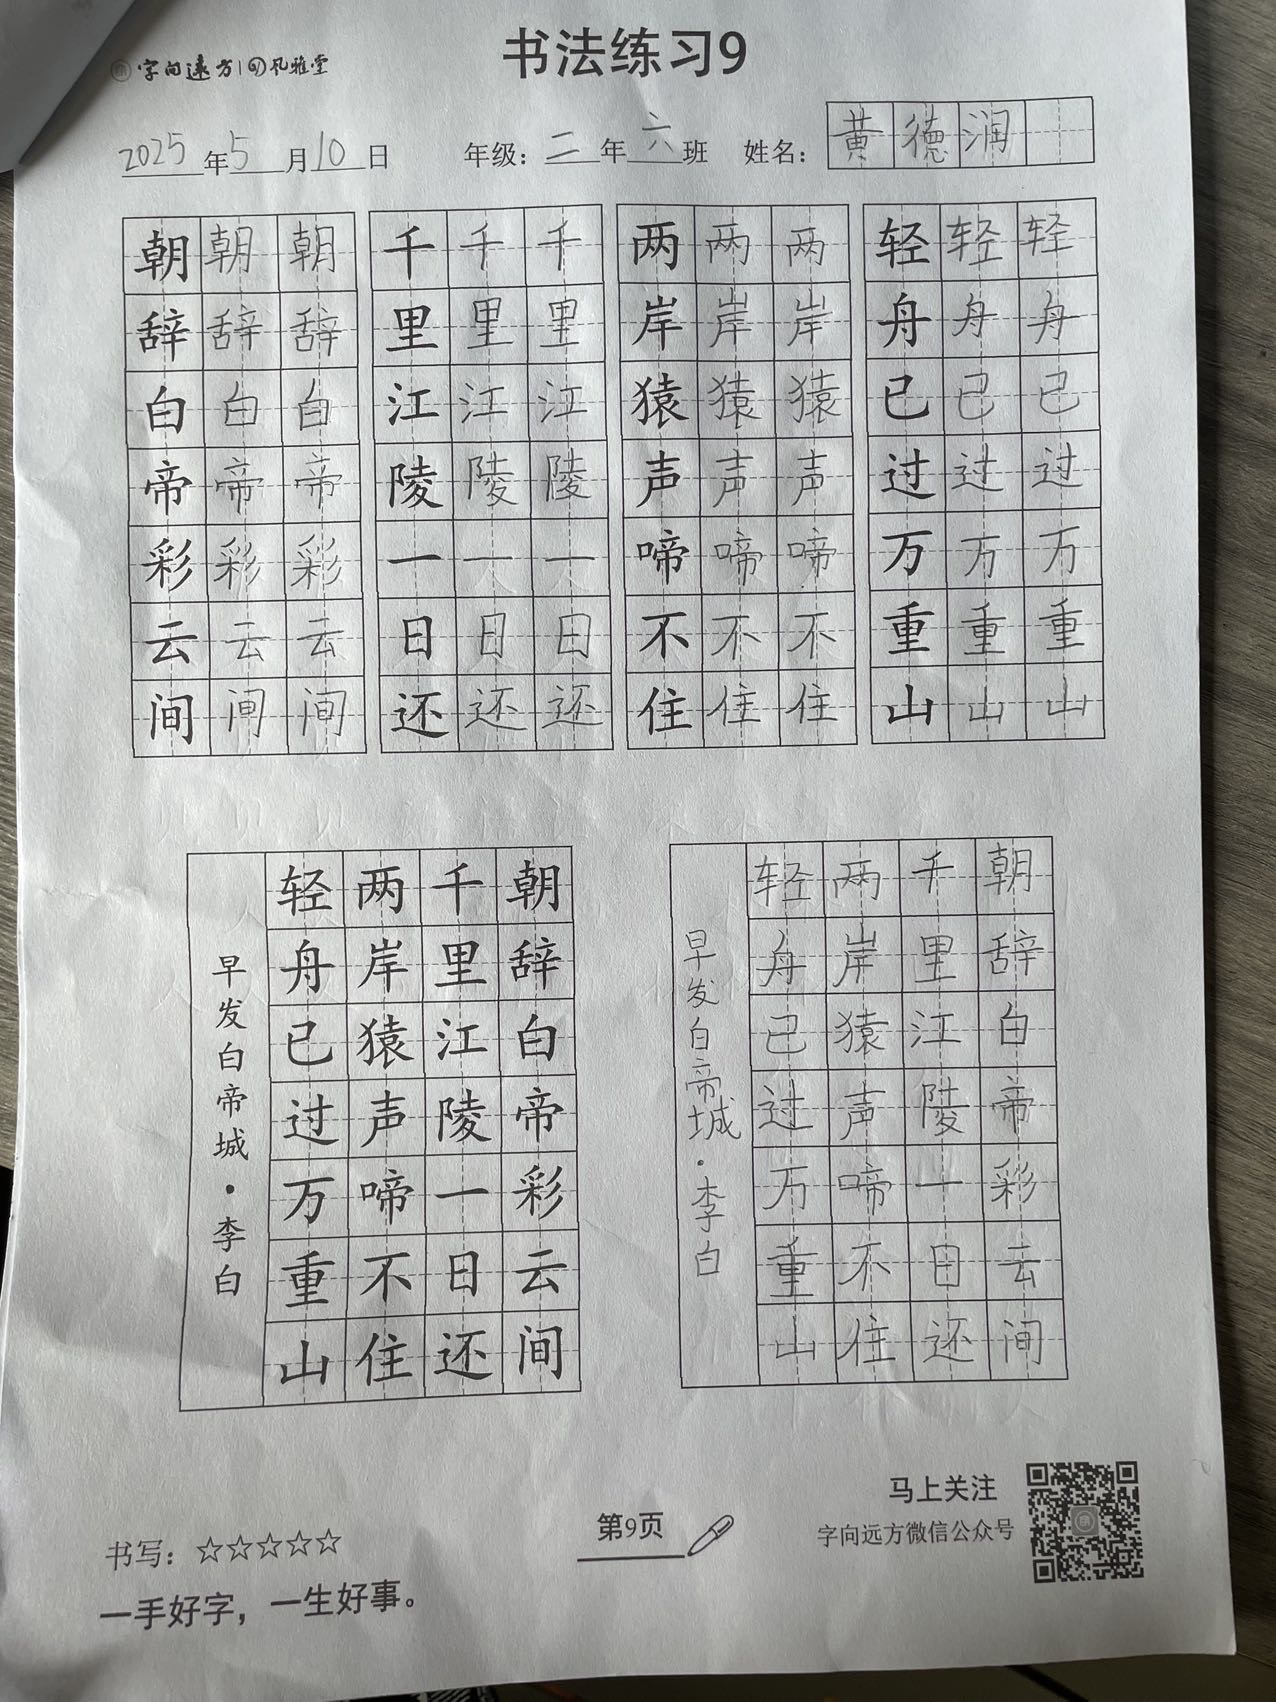 书法练习9
字向远方 | 孔雅堂
2025年5月10日 年级：二年六班 姓名：黄德润
朝朝朝 千千千 两两两 轻轻轻
辞辞辞 里里里 岸岸岸 舟舟舟
白白白 江江江 猿猿猿 已已已
帝帝帝 陵陵陵 声声声 过过过
彩彩彩 一一一 啼啼啼 万万万
云云云 日日日 不不不 重重重
间间间 还还还 住住住 山山山
朝辞白帝彩云间
千里江陵一日还
两岸猿声啼不住
轻舟已过万重山
早发白帝城·李白
朝辞白帝彩云间
千里江陵一日还
两岸猿声啼不住
轻舟已过万重山
早发白帝城·李白
书写：☆☆☆☆☆
一手好字，一生好事。
第9页
马上关注
字向远方微信公众号